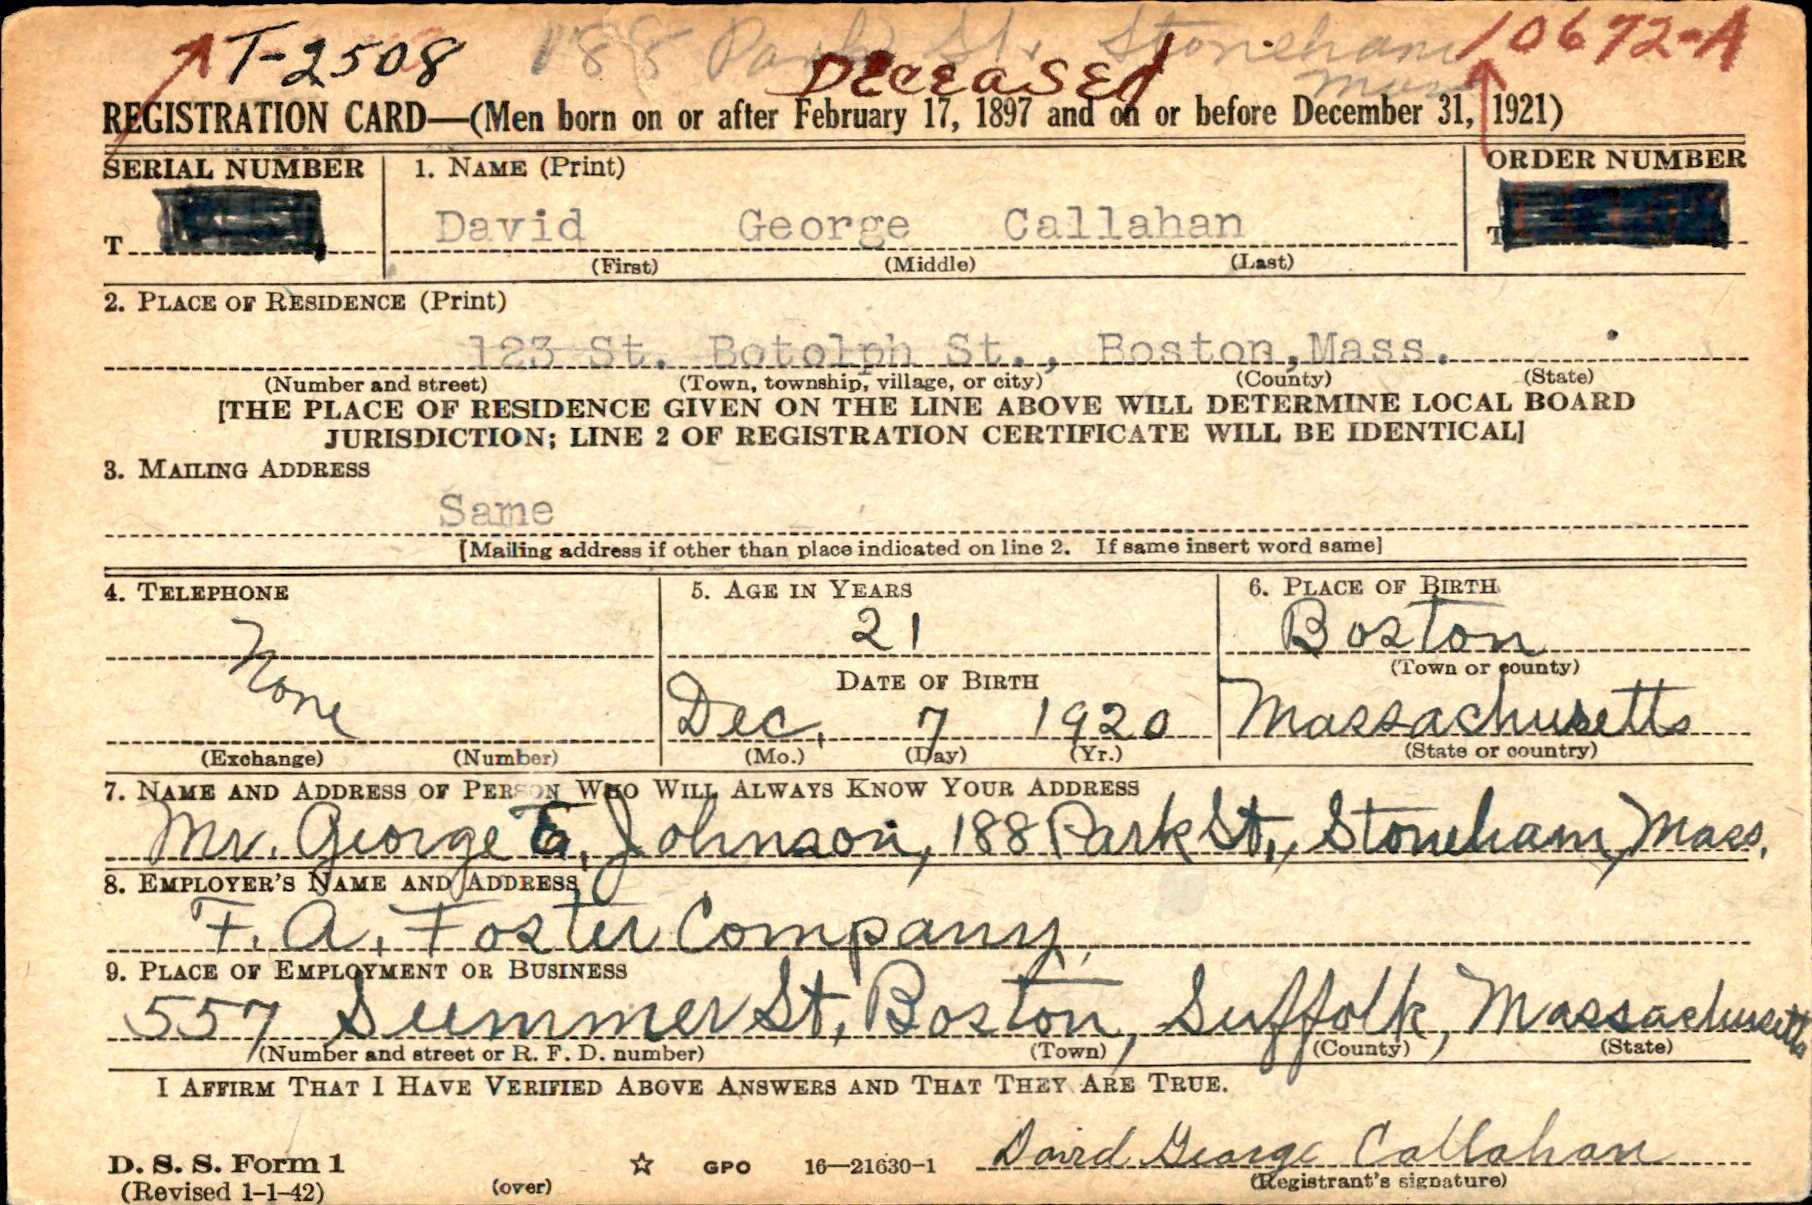 T-2508 188 Park St. Stoneham 10672-A
Mass
DECEASED
REGISTRATION CARD—(Men born on or after February 17, 1897 and on or before December 31, 1921)
SERIAL NUMBER 1. NAME (Print) ORDER NUMBER
T David George Callahan T
(First) (Middle) (Last)
2. PLACE OF RESIDENCE (Print)
123 St. Botolph St., Boston,Mass.
(Number and street) (Town, township, village, or city) (County) (State)
[THE PLACE OF RESIDENCE GIVEN ON THE LINE ABOVE WILL DETERMINE LOCAL BOARD
JURISDICTION; LINE 2 OF REGISTRATION CERTIFICATE WILL BE IDENTICAL]
3. MAILING ADDRESS
Same
[Mailing address if other than place indicated on line 2. If same insert word same]
4. TELEPHONE 5. AGE IN YEARS 6. PLACE OF BIRTH
21 Boston
(Town or county)
None DATE OF BIRTH
Dec. 7 1920 Massachusetts
(Exchange) (Number) (Mo.) (Day) (Yr.) (State or country)
7. NAME AND ADDRESS OF PERSON WHO WILL ALWAYS KNOW YOUR ADDRESS
Mr. George E. Johnson, 188 Park St., Stoneham, Mass.
8. EMPLOYER'S NAME AND ADDRESS
F. A. Foster Company,
9. PLACE OF EMPLOYMENT OR BUSINESS
557 Summer St, Boston, Suffolk, Massachusetts
(Number and street or R. F. D. number) (Town) (County) (State)
I AFFIRM THAT I HAVE VERIFIED ABOVE ANSWERS AND THAT THEY ARE TRUE.
David George Callahan
D. S. S. Form 1 GPO 16—21630-1
(Revised 1-1-42) (over) (Registrant's signature)